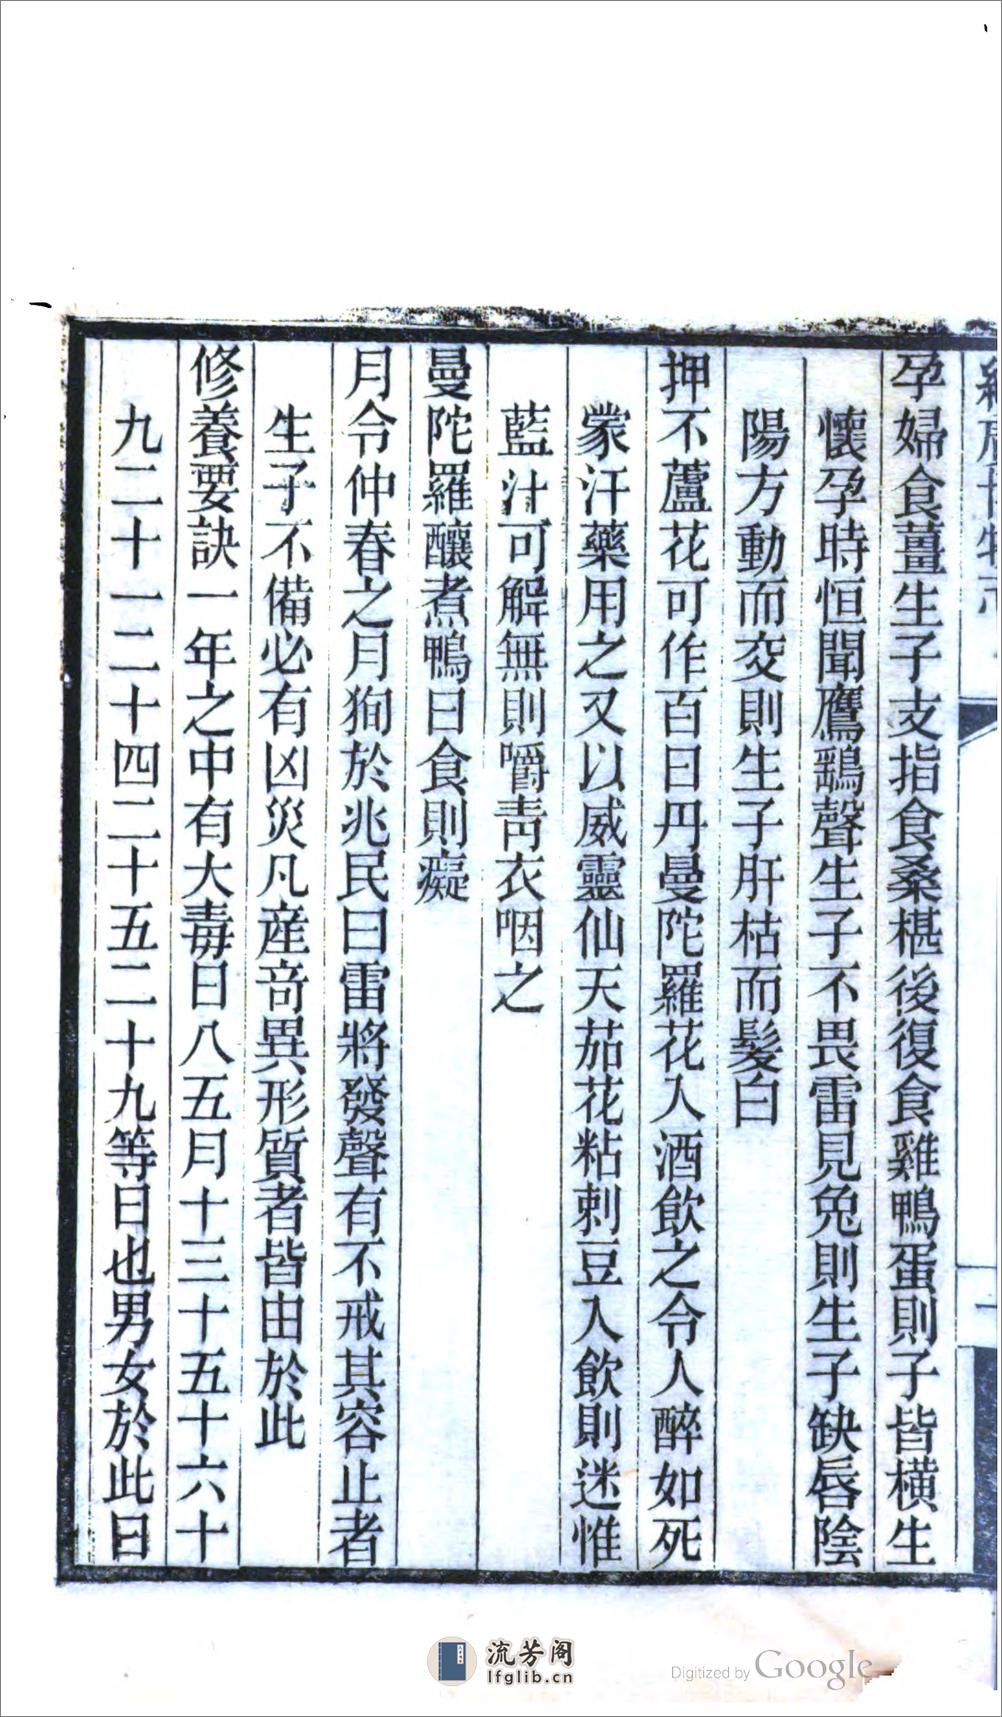 孕婦食薑生子支指食桑椹後復食雞鴨蛋則子皆橫生
懷孕時恒聞鷹鷂聲生子不畏雷見兔則生子缺唇陰
陽方動而交則生子肝枯而髮白
押不蘆花可作百日丹曼陀羅花入酒飲之令人醉如死
蒙汗藥用之又以威靈仙天茄花粘刺豆入飲則迷惟
藍汁可解無則嚼靑衣咽之
曼陀羅釀煮鴨曰食則癡
月令仲春之月狥於兆民曰雷將發聲有不戒其容止者
生子不備必有凶災凡産竒異形質者皆由於此
修養要訣一年之中有大毒日八五月十三十五十六十
九二十一二十四二十五二十九等日也男女於此日
流芳阁
lfglib.cn
Digitized by Google